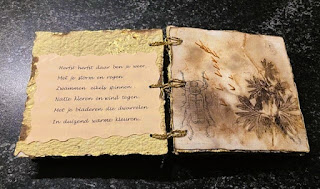 Herfst herfst daar ben je weer.
Met je storm en regen
Zwammen eikels spinnen
Natte kleren en wind tegen.
Met je bladeren die dwarrelen
In duizend warme kleuren.